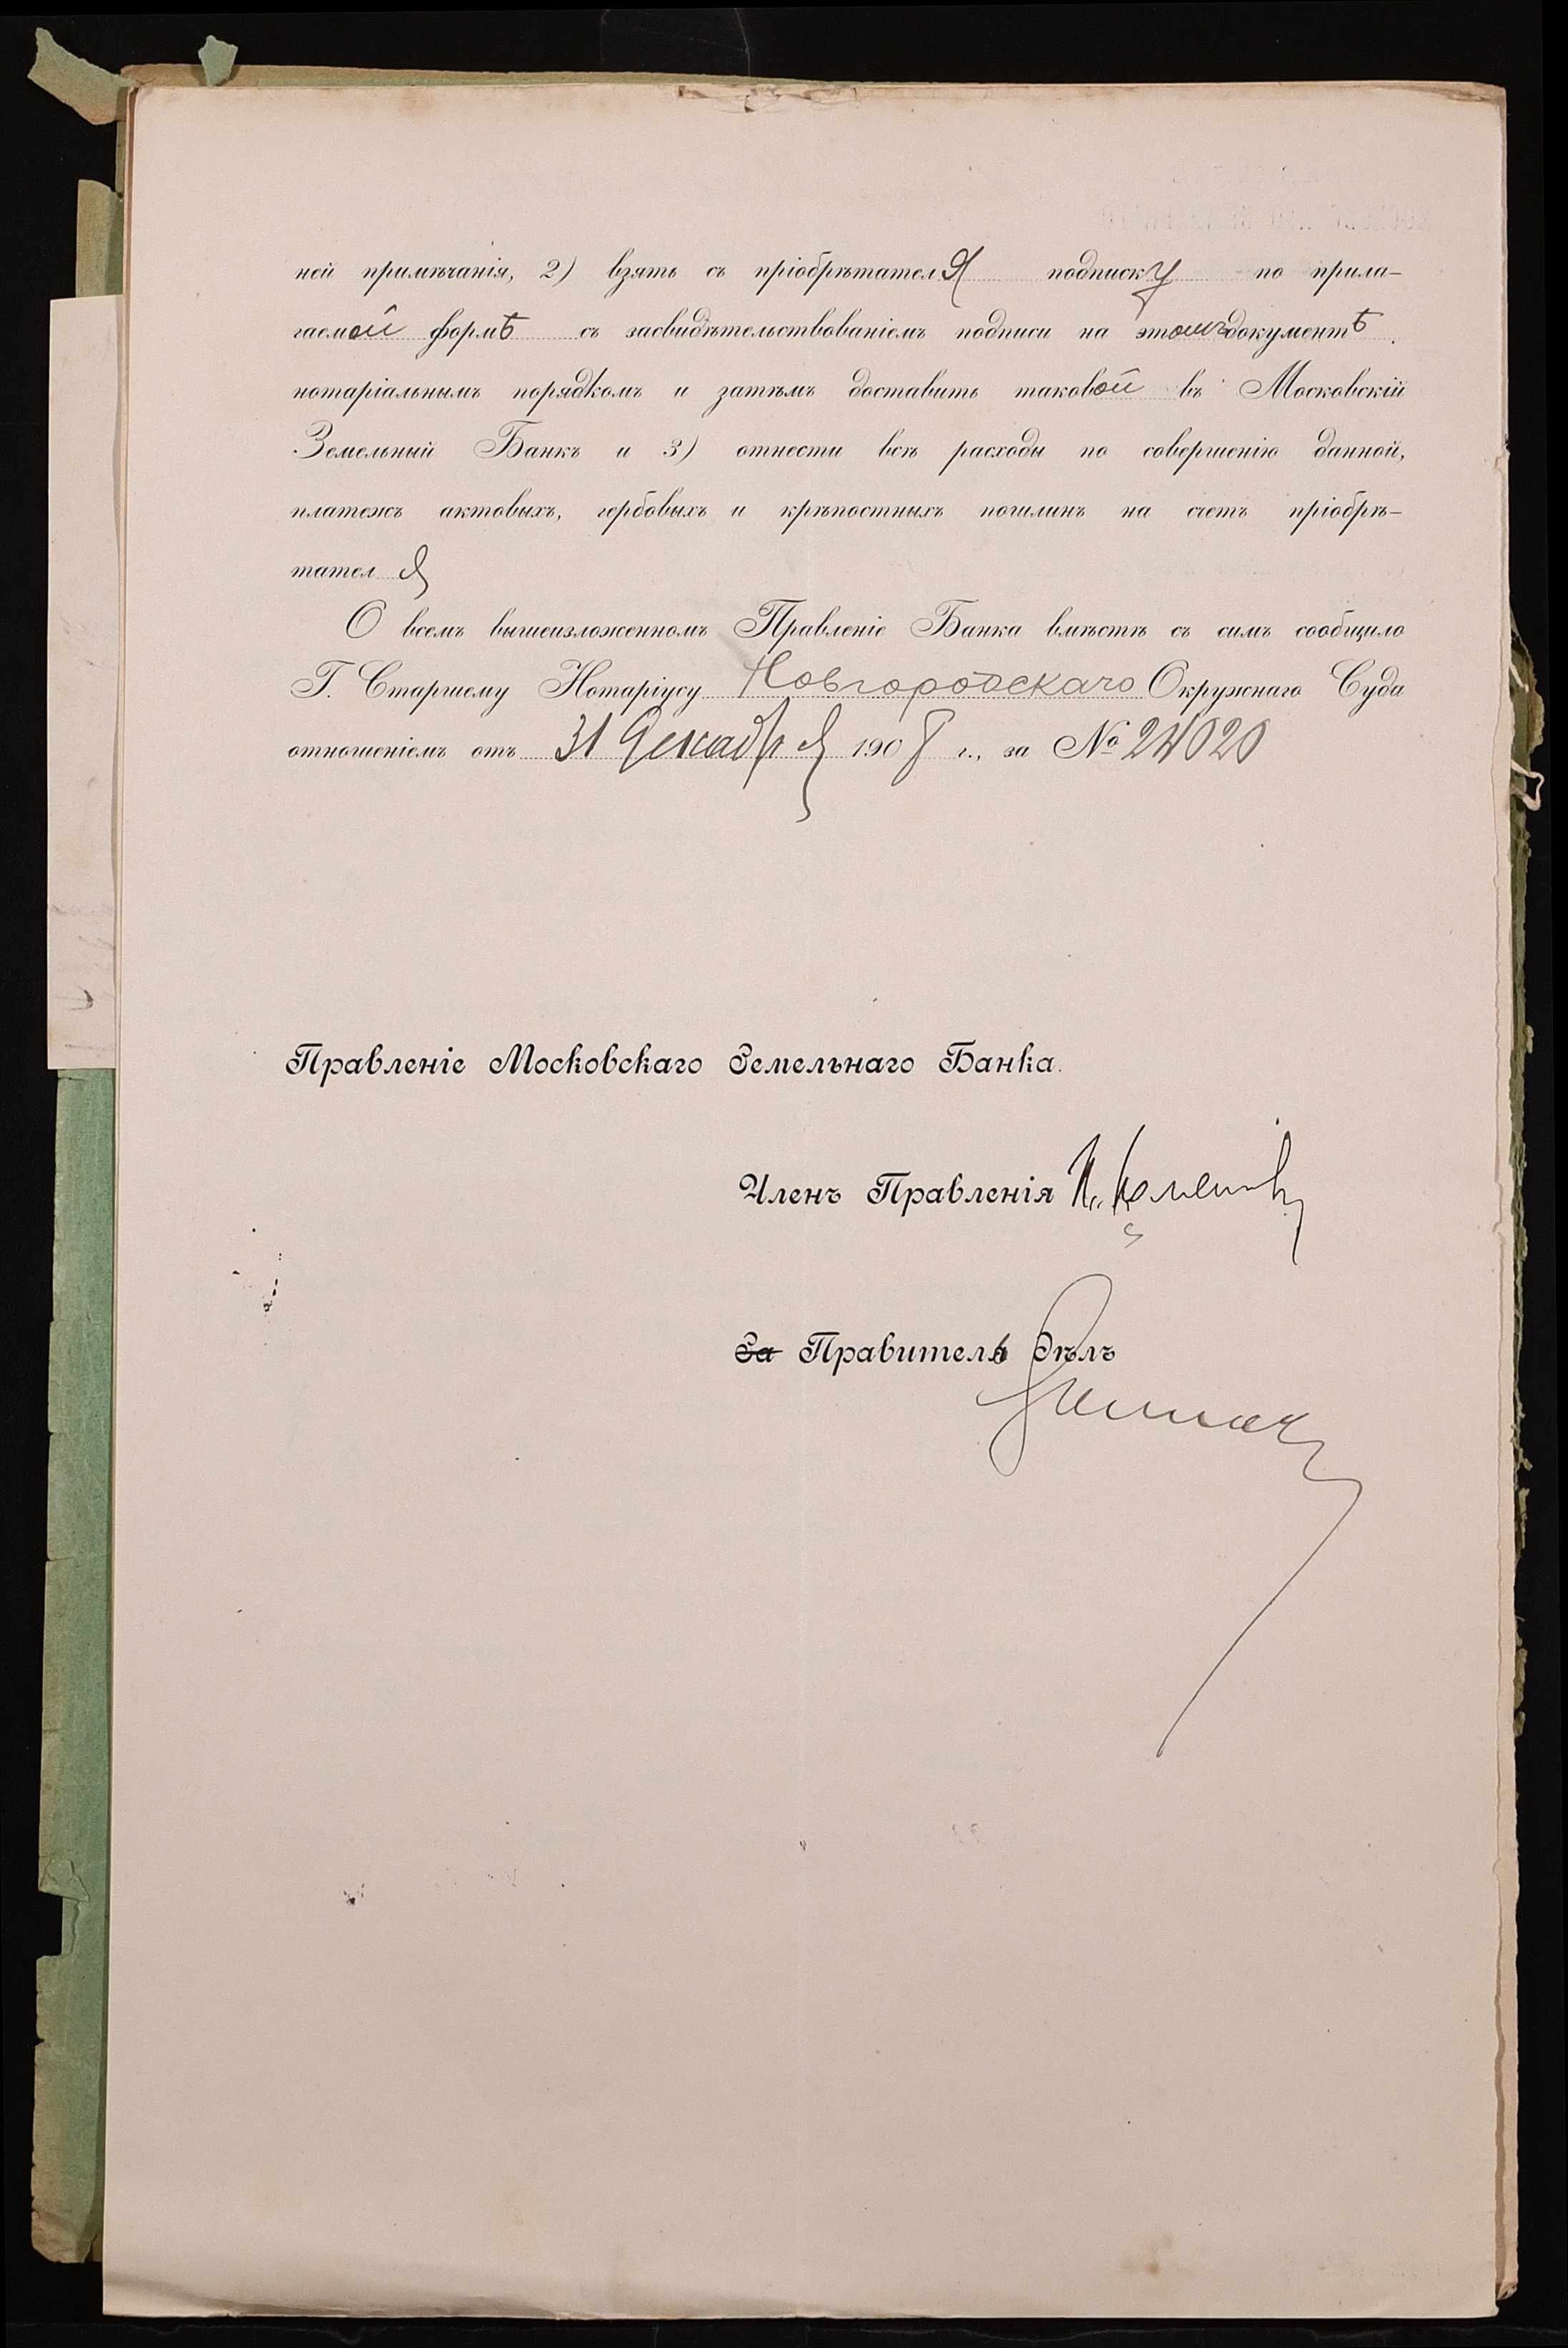 ней примѣчанія, 2) взять съ пріобрѣтателя подписку по прила-
гаемой формѣ съ засвидѣтельствованіемъ подписи на этомъ документѣ
нотаріальнымъ порядкомъ и затѣмъ доставить таковой въ Московскій
Земельный Банкъ и 3) отнести всѣ расходы по совершенію данной,
платежъ актовыхъ, гербовыхъ и крѣпостныхъ пошлинъ на счетъ пріобрѣ-
тателя
О всемъ вышеизложенномъ Правленіе Банка вмѣстѣ съ симъ сообщило
Г. Старшему Нотаріусу Новгородскаго Окружнаго Суда
отношеніемъ отъ 31 Декабря 1908 г., за № 24020
Правленіе Московскаго Земельнаго Банка.
Членъ Правленія
За Правитель Дѣлъ